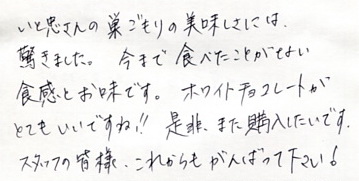 いと忠さんの巣ごもりの美味しさには、
驚きました。今まで食べたことがない
食感とお味です。ホワイトチョコレートが
とてもいいですね!!是非、また購入したいです。
スタッフの皆様、これからもがんばって下さい!